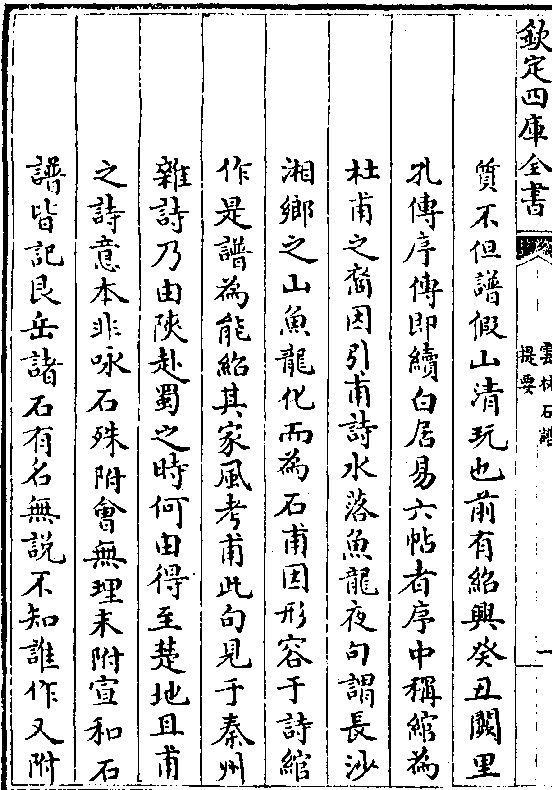 欽定四庫全書
雲林石譜
提要
質不但譜假山清玩也前有紹興癸丑闕里
孔傳序傳即續白居易六帖者序中稱綰為
杜甫之裔因引甫詩水落魚龍夜句謂長沙
湘鄉之山魚龍化而為石甫因形容于詩綰
作是譜為能紹其家風考甫此句見于秦州
雜詩乃由陝赴蜀之時何由得至楚地且甫
之詩意本非咏石殊附會無理末附宣和石
譜皆記艮岳諸石有名無說不知誰作又附